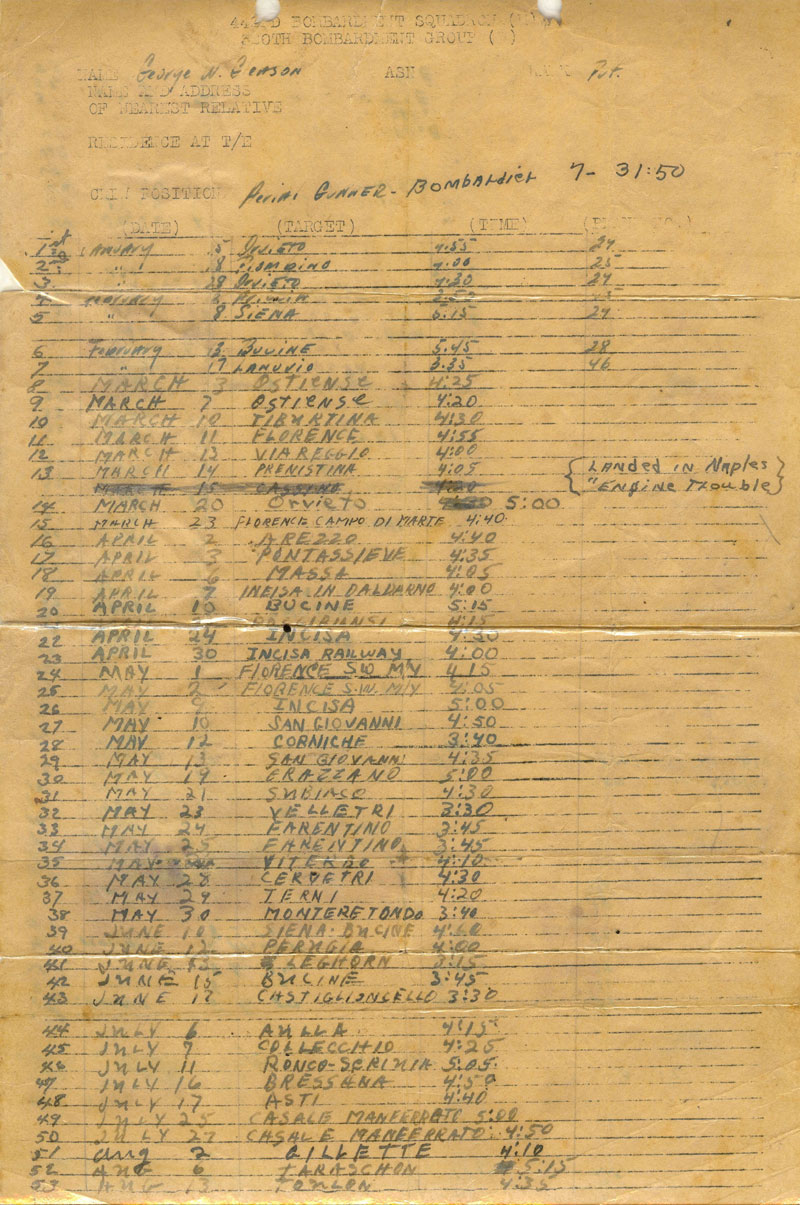 BOMBARDMENT SQUADRON
BOMBARDMENT GROUP
NAME George N. ASN Pvt.
NAME AND ADDRESS
OF NEAREST RELATIVE
RESIDENCE AT T/E
POSITION GUNNER - BOMBARDIER 7- 31:50
(DATE) (TARGET) (TIME)
1 January 5 Orvieto 4:55 24
2 " 18 Piombino 4:00 25
3 " 28 Orvieto 4:30 24
4 February
5 " 8 SIENA 24
6 February 5:45 28
7 " 17 LANUVIO 3:35 46
8 MARCH 3 OSTIENSE 4:25
9 MARCH 7 OSTIENSE 4:20
10 MARCH 10 TIBURTINA 4:30
11 MARCH 11 FLORENCE 4:55
12 MARCH 13 VIAREGGIO 4:00
13 MARCH 14 PRENISTINA 4:05 {LANDED IN Naples
MARCH 15 CASSINO 4:20 "ENGINE TROUBLE}
14 MARCH 20 Orvieto 5:00
15 MARCH 23 FLORENCE CAMPO DI MARTE 4:40
16 APRIL 2 AREZZO 4:40
17 APRIL 3 PONTASSIEVE 4:35
18 APRIL 6 MASSA 4:05
19 APRIL 7 INCISA IN DALDARNO 4:00
20 APRIL 10 BUCINE 5:15
4:15
22 APRIL 24 INCISA 4:30
23 APRIL 30 INCISA RAILWAY 4:00
24 MAY 1 FLORENCE S.W. M/Y 4 15
25 MAY 2 FLORENCE S.W. M/Y 4:05
26 MAY 9 INCISA 5:00
27 MAY 10 SAN GIOVANNI 4:50
28 MAY 12 CORNICHE 3:40
29 MAY 13 SAN GIOVANNI 4:35
30 MAY 19 ERAZZANO 5:00
31 MAY 21 SUBIACO 4:30
32 MAY 23 VELLETRI 3:30
33 MAY 24 FARENTINO 3:45
34 MAY 25 FARENTINO 3:45
35 MAY VITERBO 4:10
36 MAY 28 CERVETRI 4:30
37 MAY 29 TERNI 4:20
38 MAY 30 MONTERETONDO 3:40
39 JUNE 10 SIENA-BUCINE
40 JUNE 12 PERUGIA 4:00
41 JUNE LEGHORN 3:15
42 JUNE 15 BUCINE 3:45
43 JUNE 17 CASTIGLIONCELLO 3:30
44 JULY 6 AULLA 4:15
45 JULY 7 COLLECCHIO 4:25
46 JULY 11 RONCO-SCRIVIA 5:05
47 JULY 16 BRESSANA 4:50
48 JULY 17 ASTI 4:40
49 JULY 25 CASALE MANFERRATO 5:00
50 JULY 27 CASALE MANFERRATO 4:50
51 Aug 2 GILLETTE 4:10
52 AUG 6 TARASCHON 5:15
53 AUG 13 TOULON 4:35